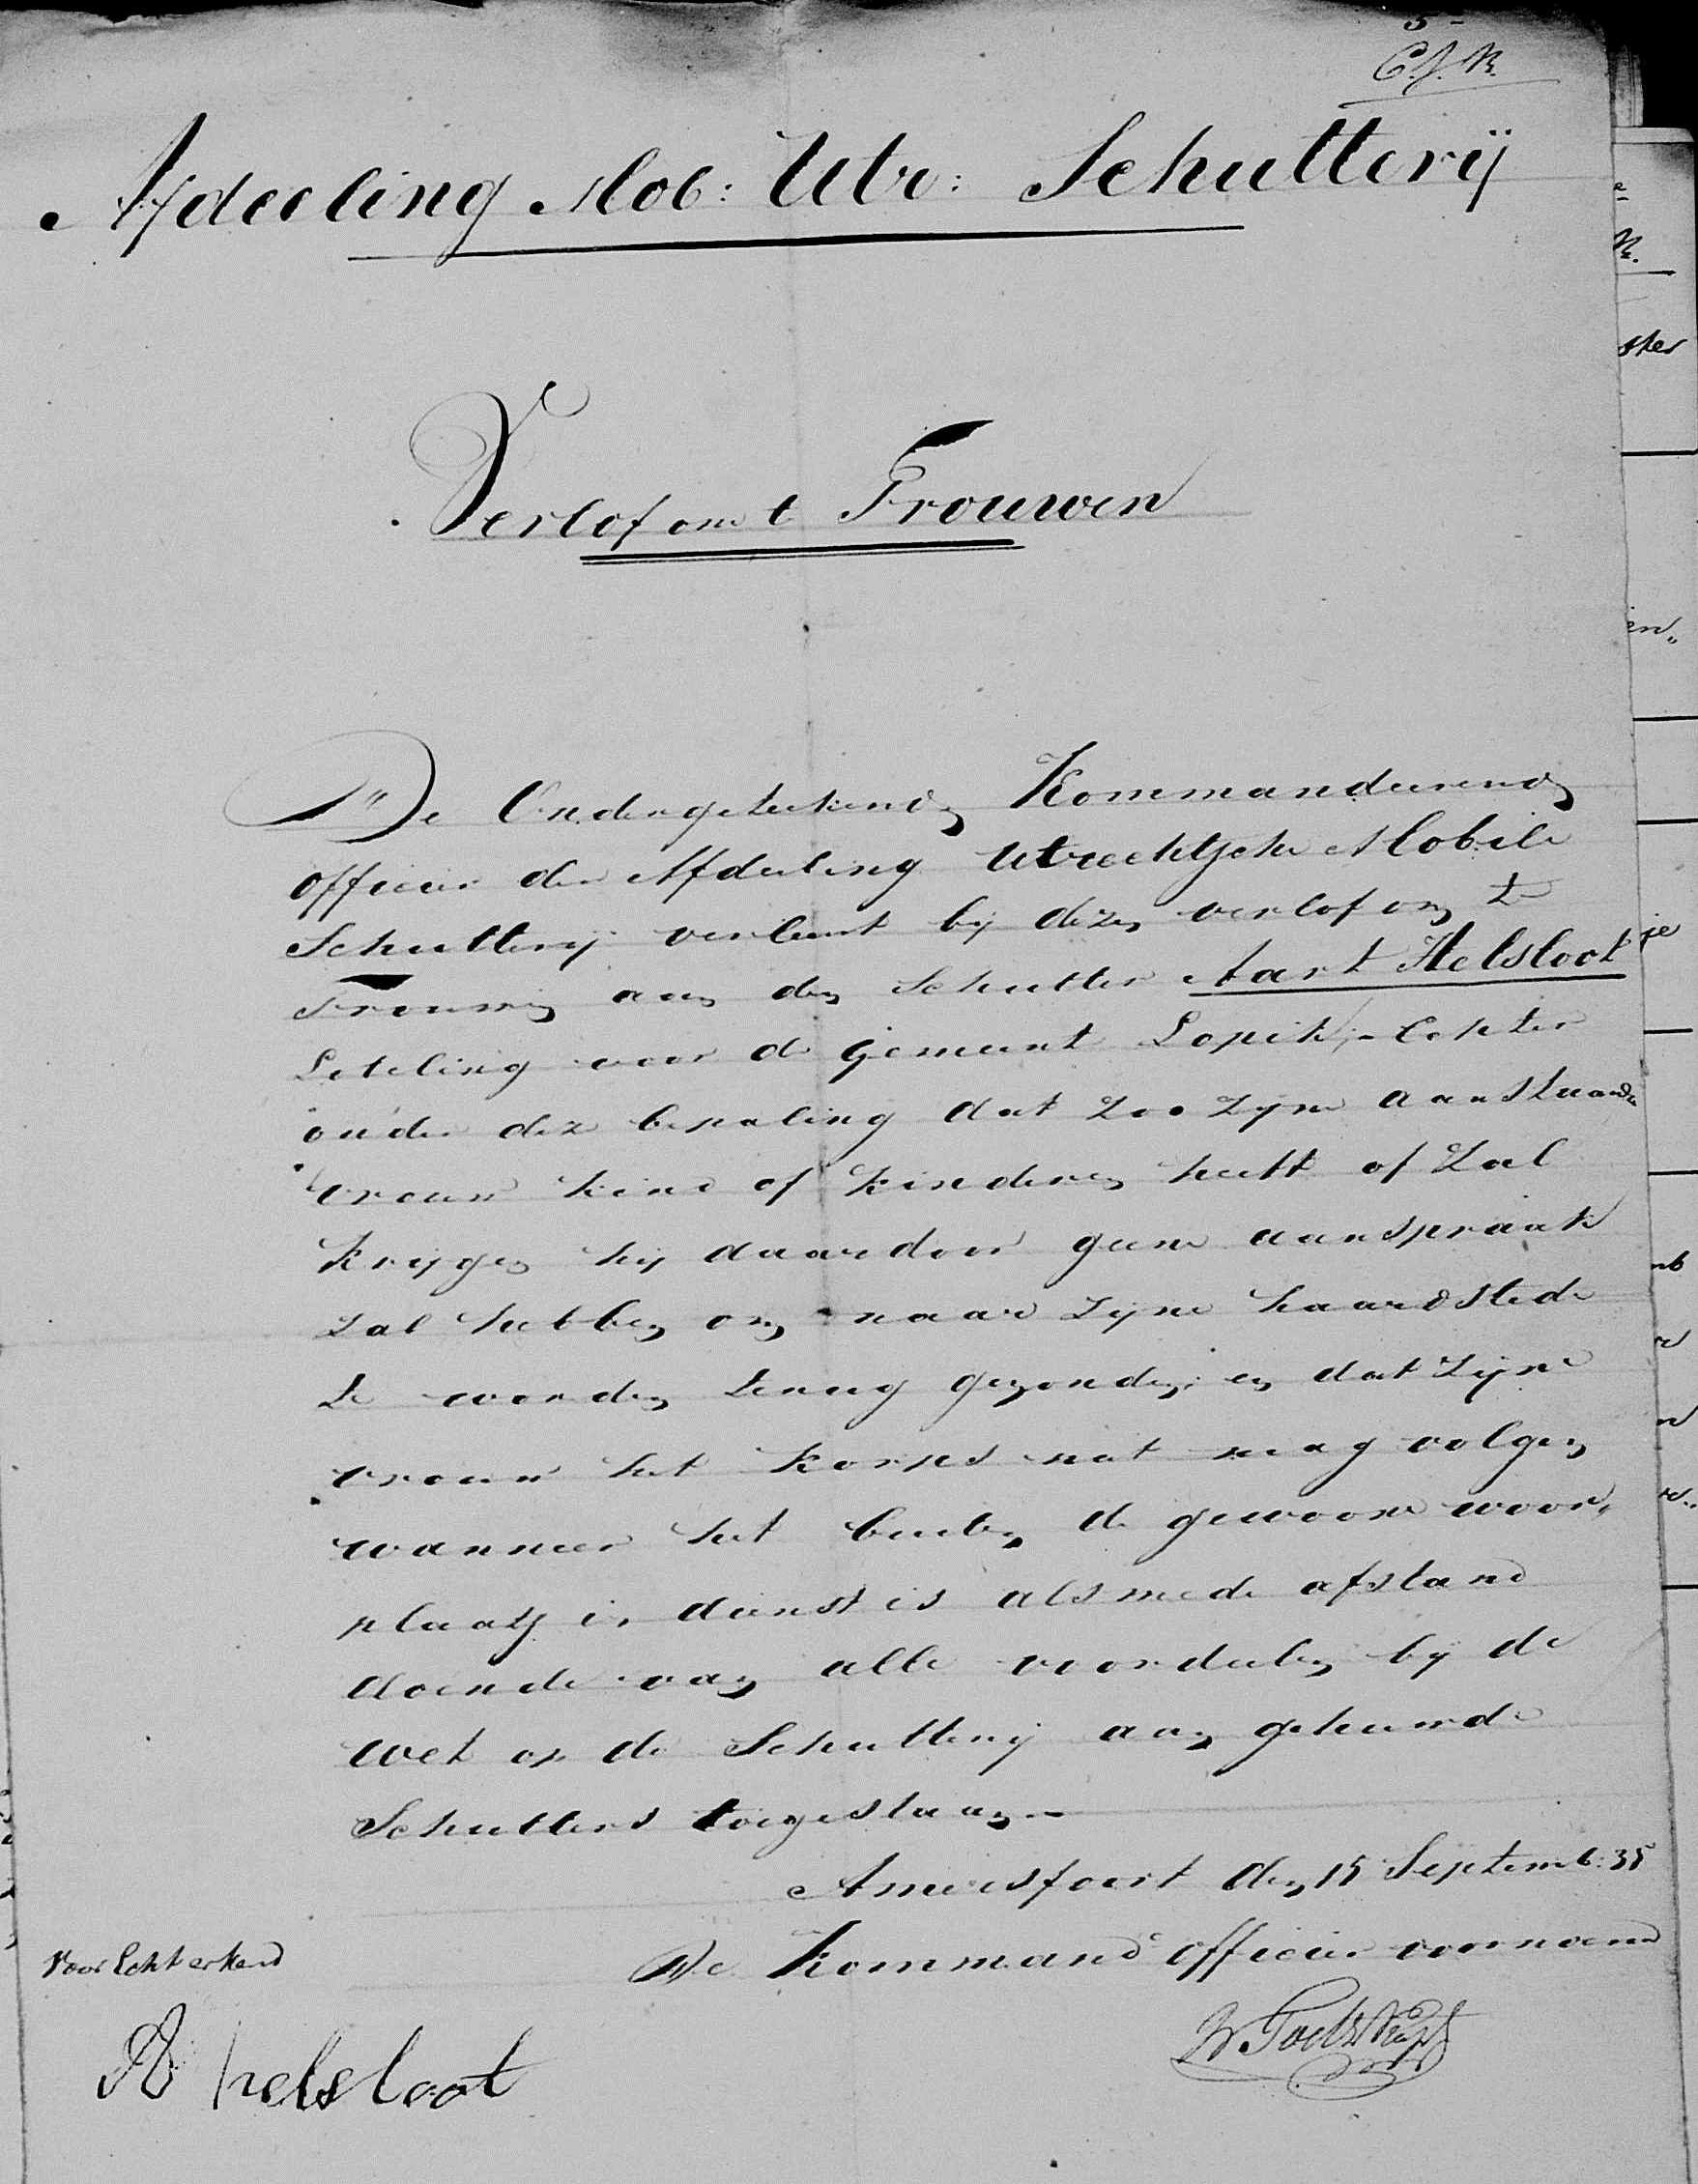 5
C.J.B.
Afdeeling Mob: Utr: Schutterij
Verlof om te Trouwen
De Ondergeteekende Kommandeerend
Officier der Afdeeling Utrechtsche Mobile
Schutterij verleent bij dezen verlof om te
Trouwen aan den Schutter Aart Helsloot
Loteling voor de gemeente Lopik,
onder deze bepaling dat zoo zijne aanstaande
vrouw kind of kinderen heeft of zal
krijgen hij daardoor geene aanspraak
zal hebben om naar zijne haardstede
te worden terug gezonden; en dat zijne
vrouw het korps niet mag volgen
wanneer het buiten de gewoone woon,
plaats in dienst is alsmede afstand
doende van alle voordeelen bij de
wet op de Schutterij aan gehuwde
Schutters toegestaan.—
Amersfoort den 15 Septemb: 35
De Kommandᵉ officier voornoemd
Voor Echt erkend
A helsloot